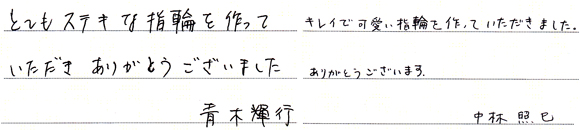 とてもステキな指輪を作って
いただき ありがとうございました
青木輝行
キレイで可愛い指輪を作っていただきました。
ありがとうございます。
中林 照巳